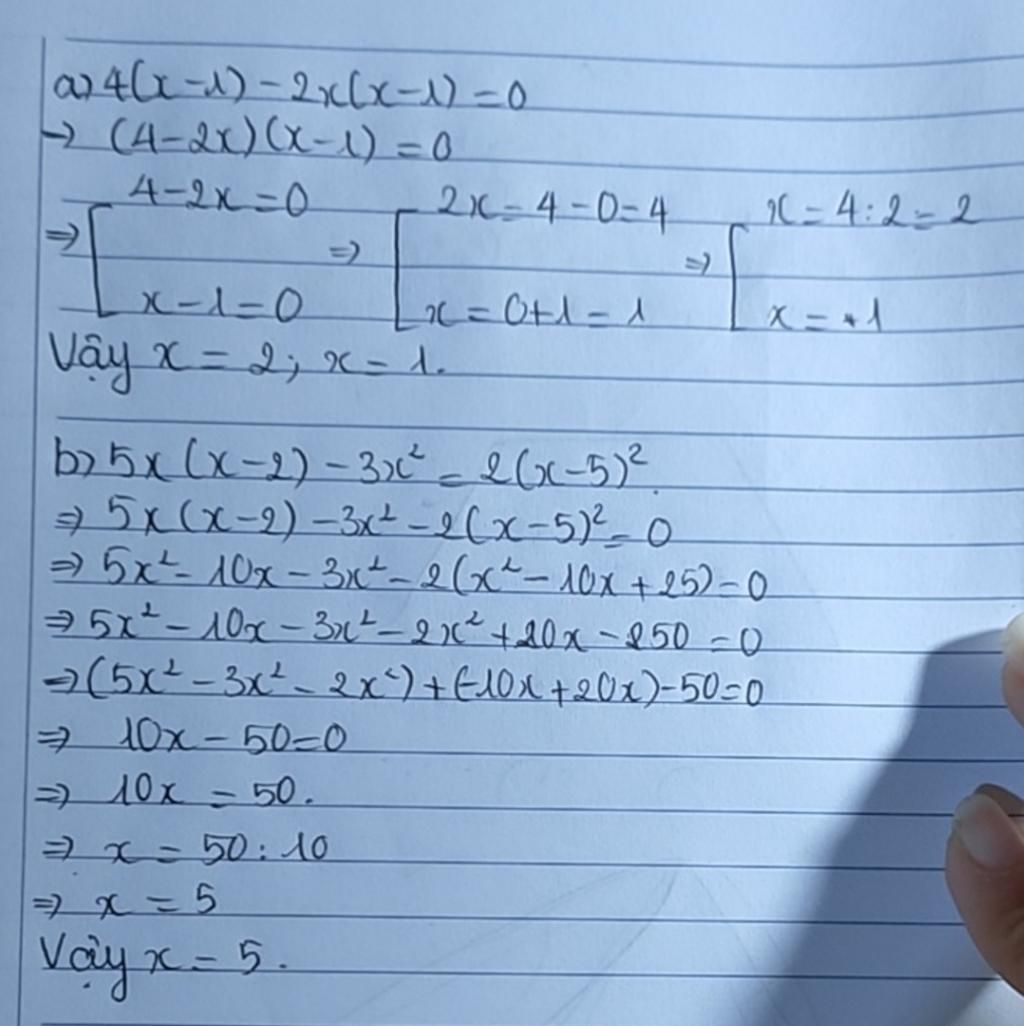 a) 4(x-1) - 2x(x-1) = 0
→ (4-2x)(x-1) = 0
⇒ [ 4-2x=0 ⇒ [ 2x = 4-0=4 ⇒ [ x=4:2=2
x-1=0 x=0+1=1 x=+1
Vậy x=2; x=1.
b) 5x(x-2) - 3x² = 2(x-5)²
⇒ 5x(x-2) - 3x² - 2(x-5)² = 0
⇒ 5x² - 10x - 3x² - 2(x² - 10x + 25) = 0
⇒ 5x² - 10x - 3x² - 2x² + 20x - 50 = 0
→ (5x² - 3x² - 2x²) + (-10x + 20x) - 50 = 0
⇒ 10x - 50 = 0
⇒ 10x = 50.
⇒ x = 50:10
⇒ x = 5
Vậy x = 5.